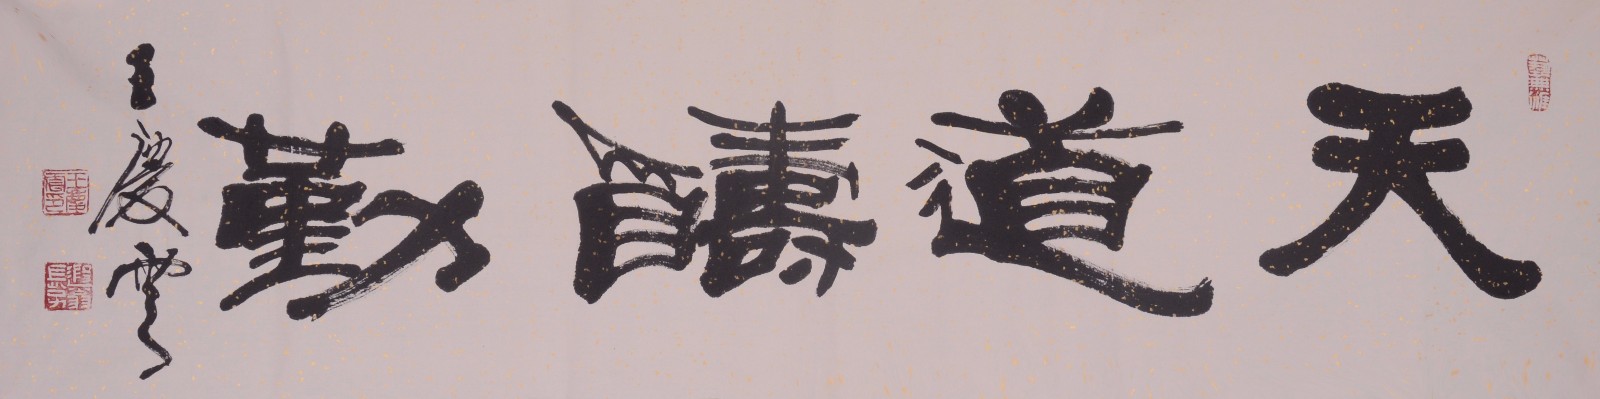 天道酬勤
王慶雲